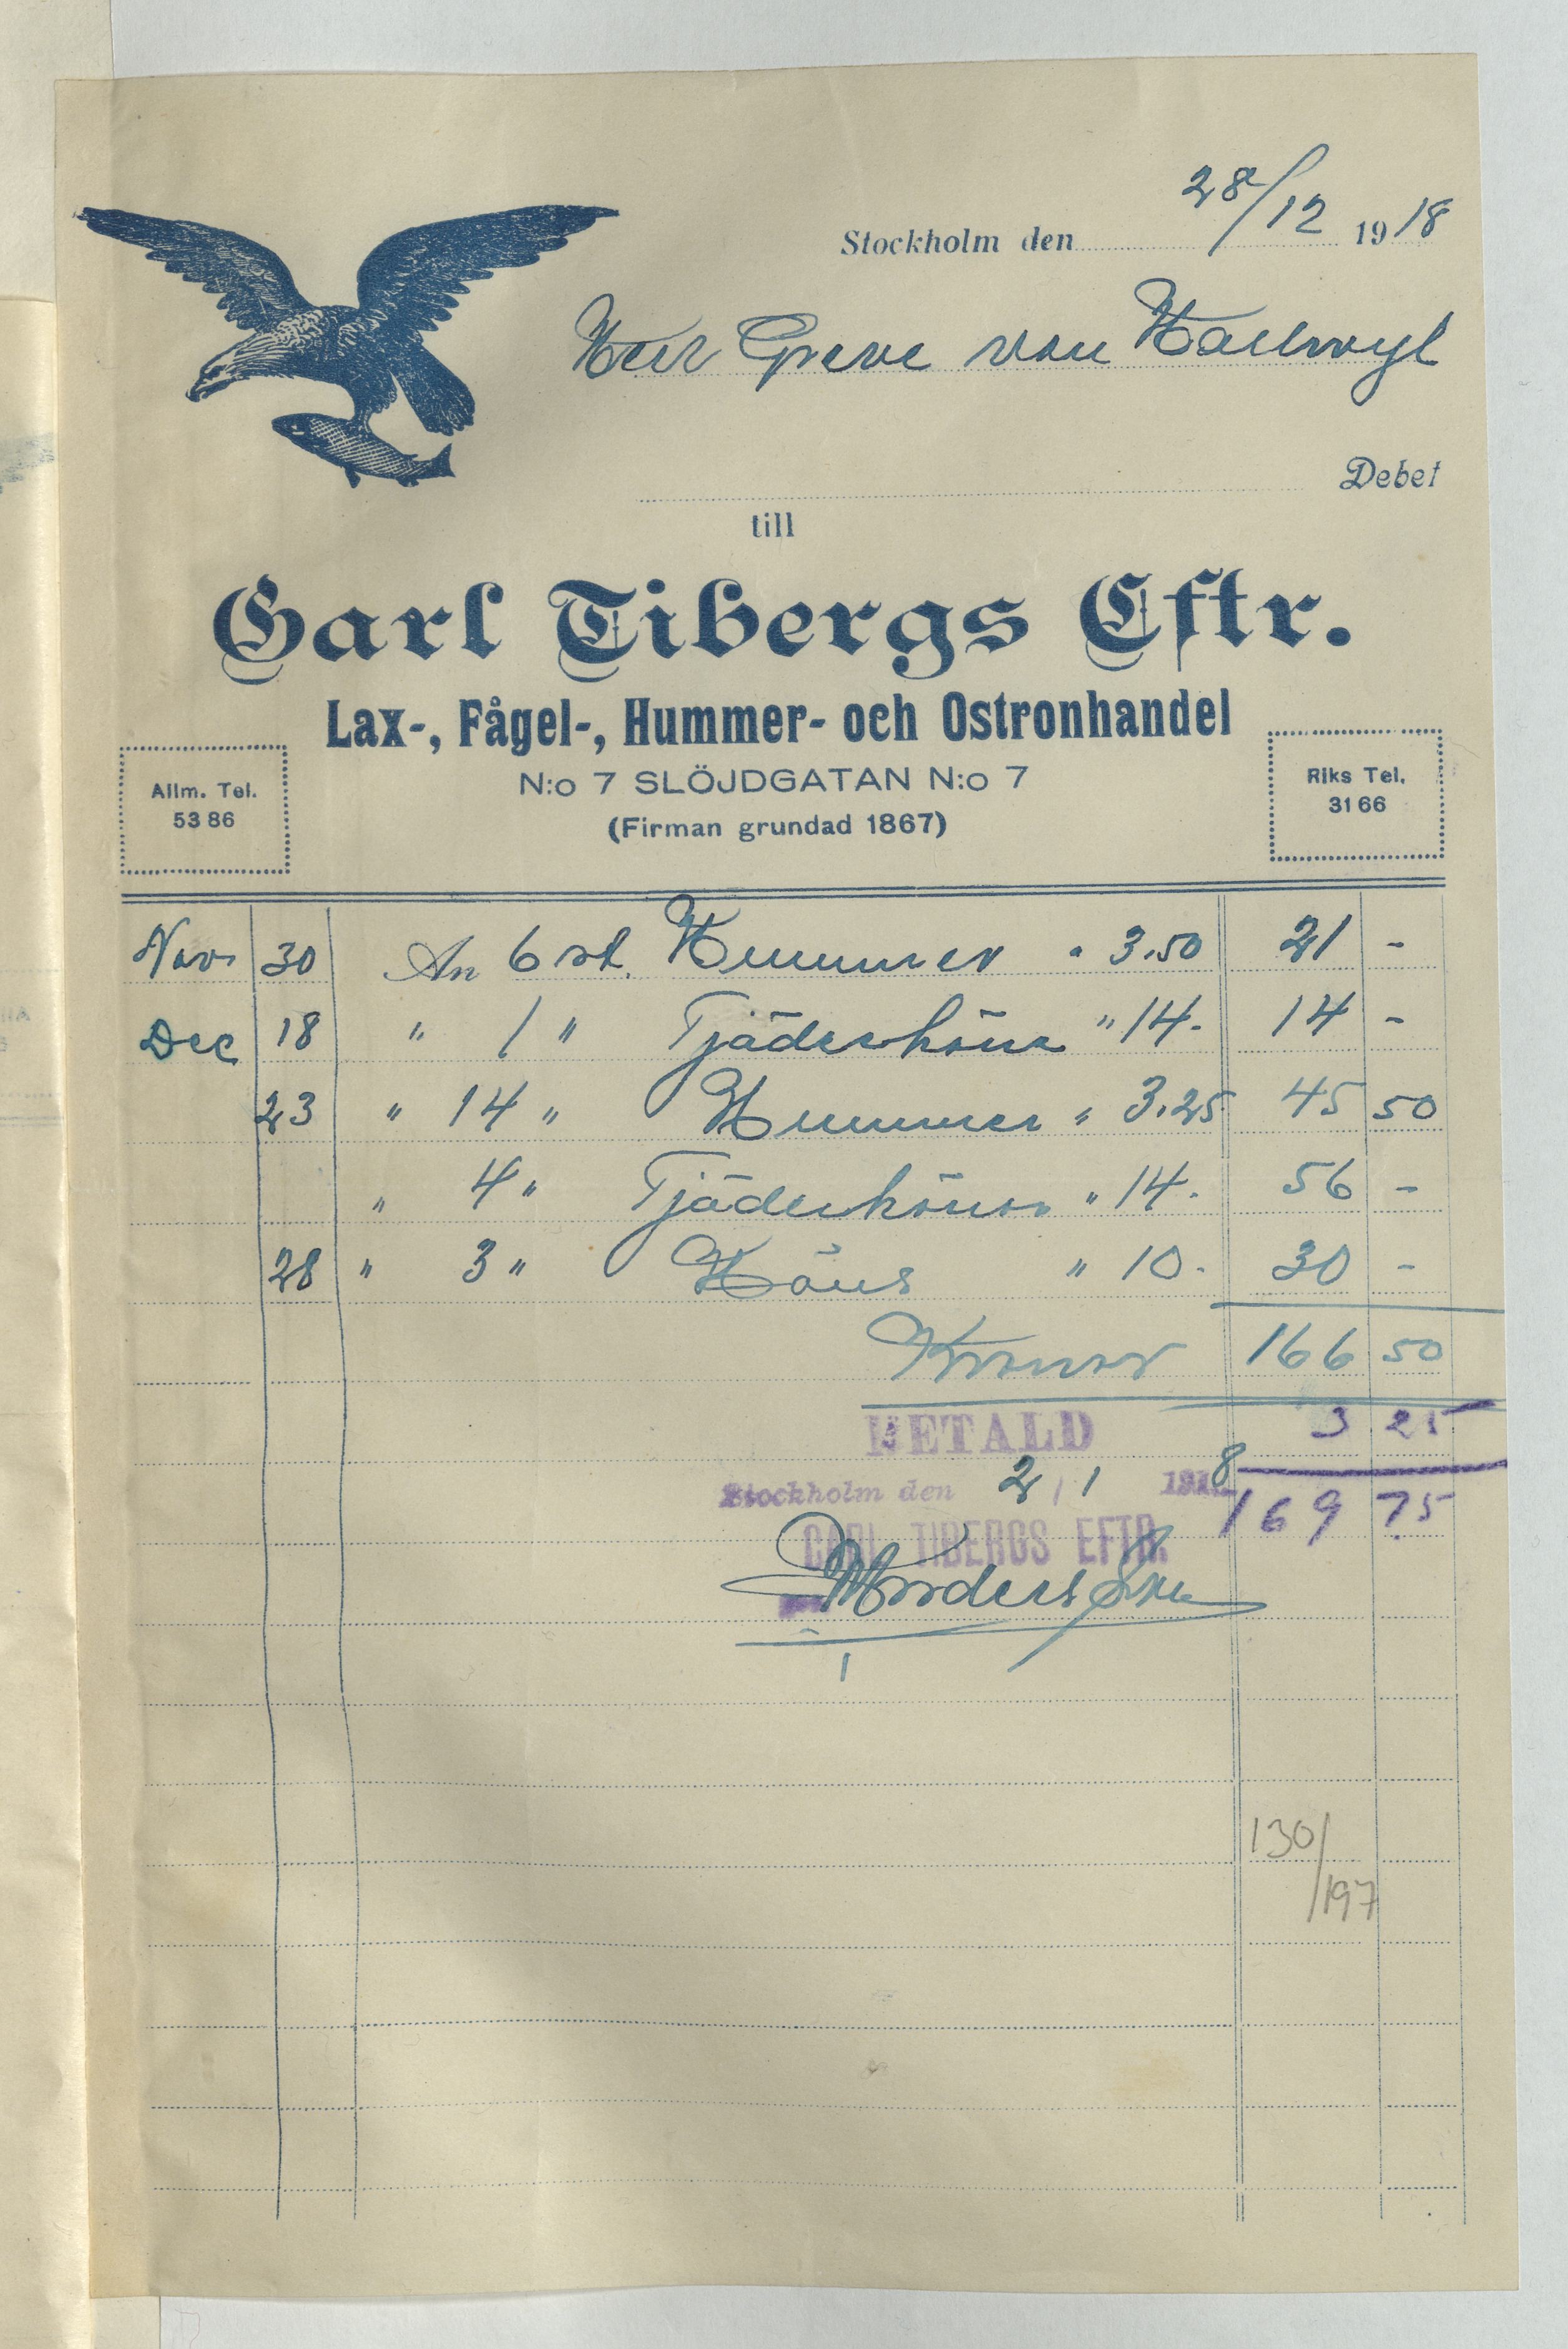 Stockholm den 28/12 1918
Herr Greve von Hallwyl
Debet
till
Carl Tibergs Eftr.
Lax-, Fågel-, Hummer- och Ostronhandel
N:o 7 SLÖJDGATAN N:o 7
(Firman grundad 1867)
Allm. Tel.
53 86
Riks Tel.
31 66
Nov 30 An 6 st. Hummer " 3.50 21 -
Dec 18 " 1 " Tjäderhöna " 14.- 14 -
23 " 14 " Hummer " 3.25 45 50
" 4 " Tjäderhönor " 14.- 56 -
28 " 3 " Höns " 10.- 30 -
Kronor 166 50
3 25
169 75
BETALD
Stockholm den 2/1 1918
CARL TIBERGS EFTR.
130/197